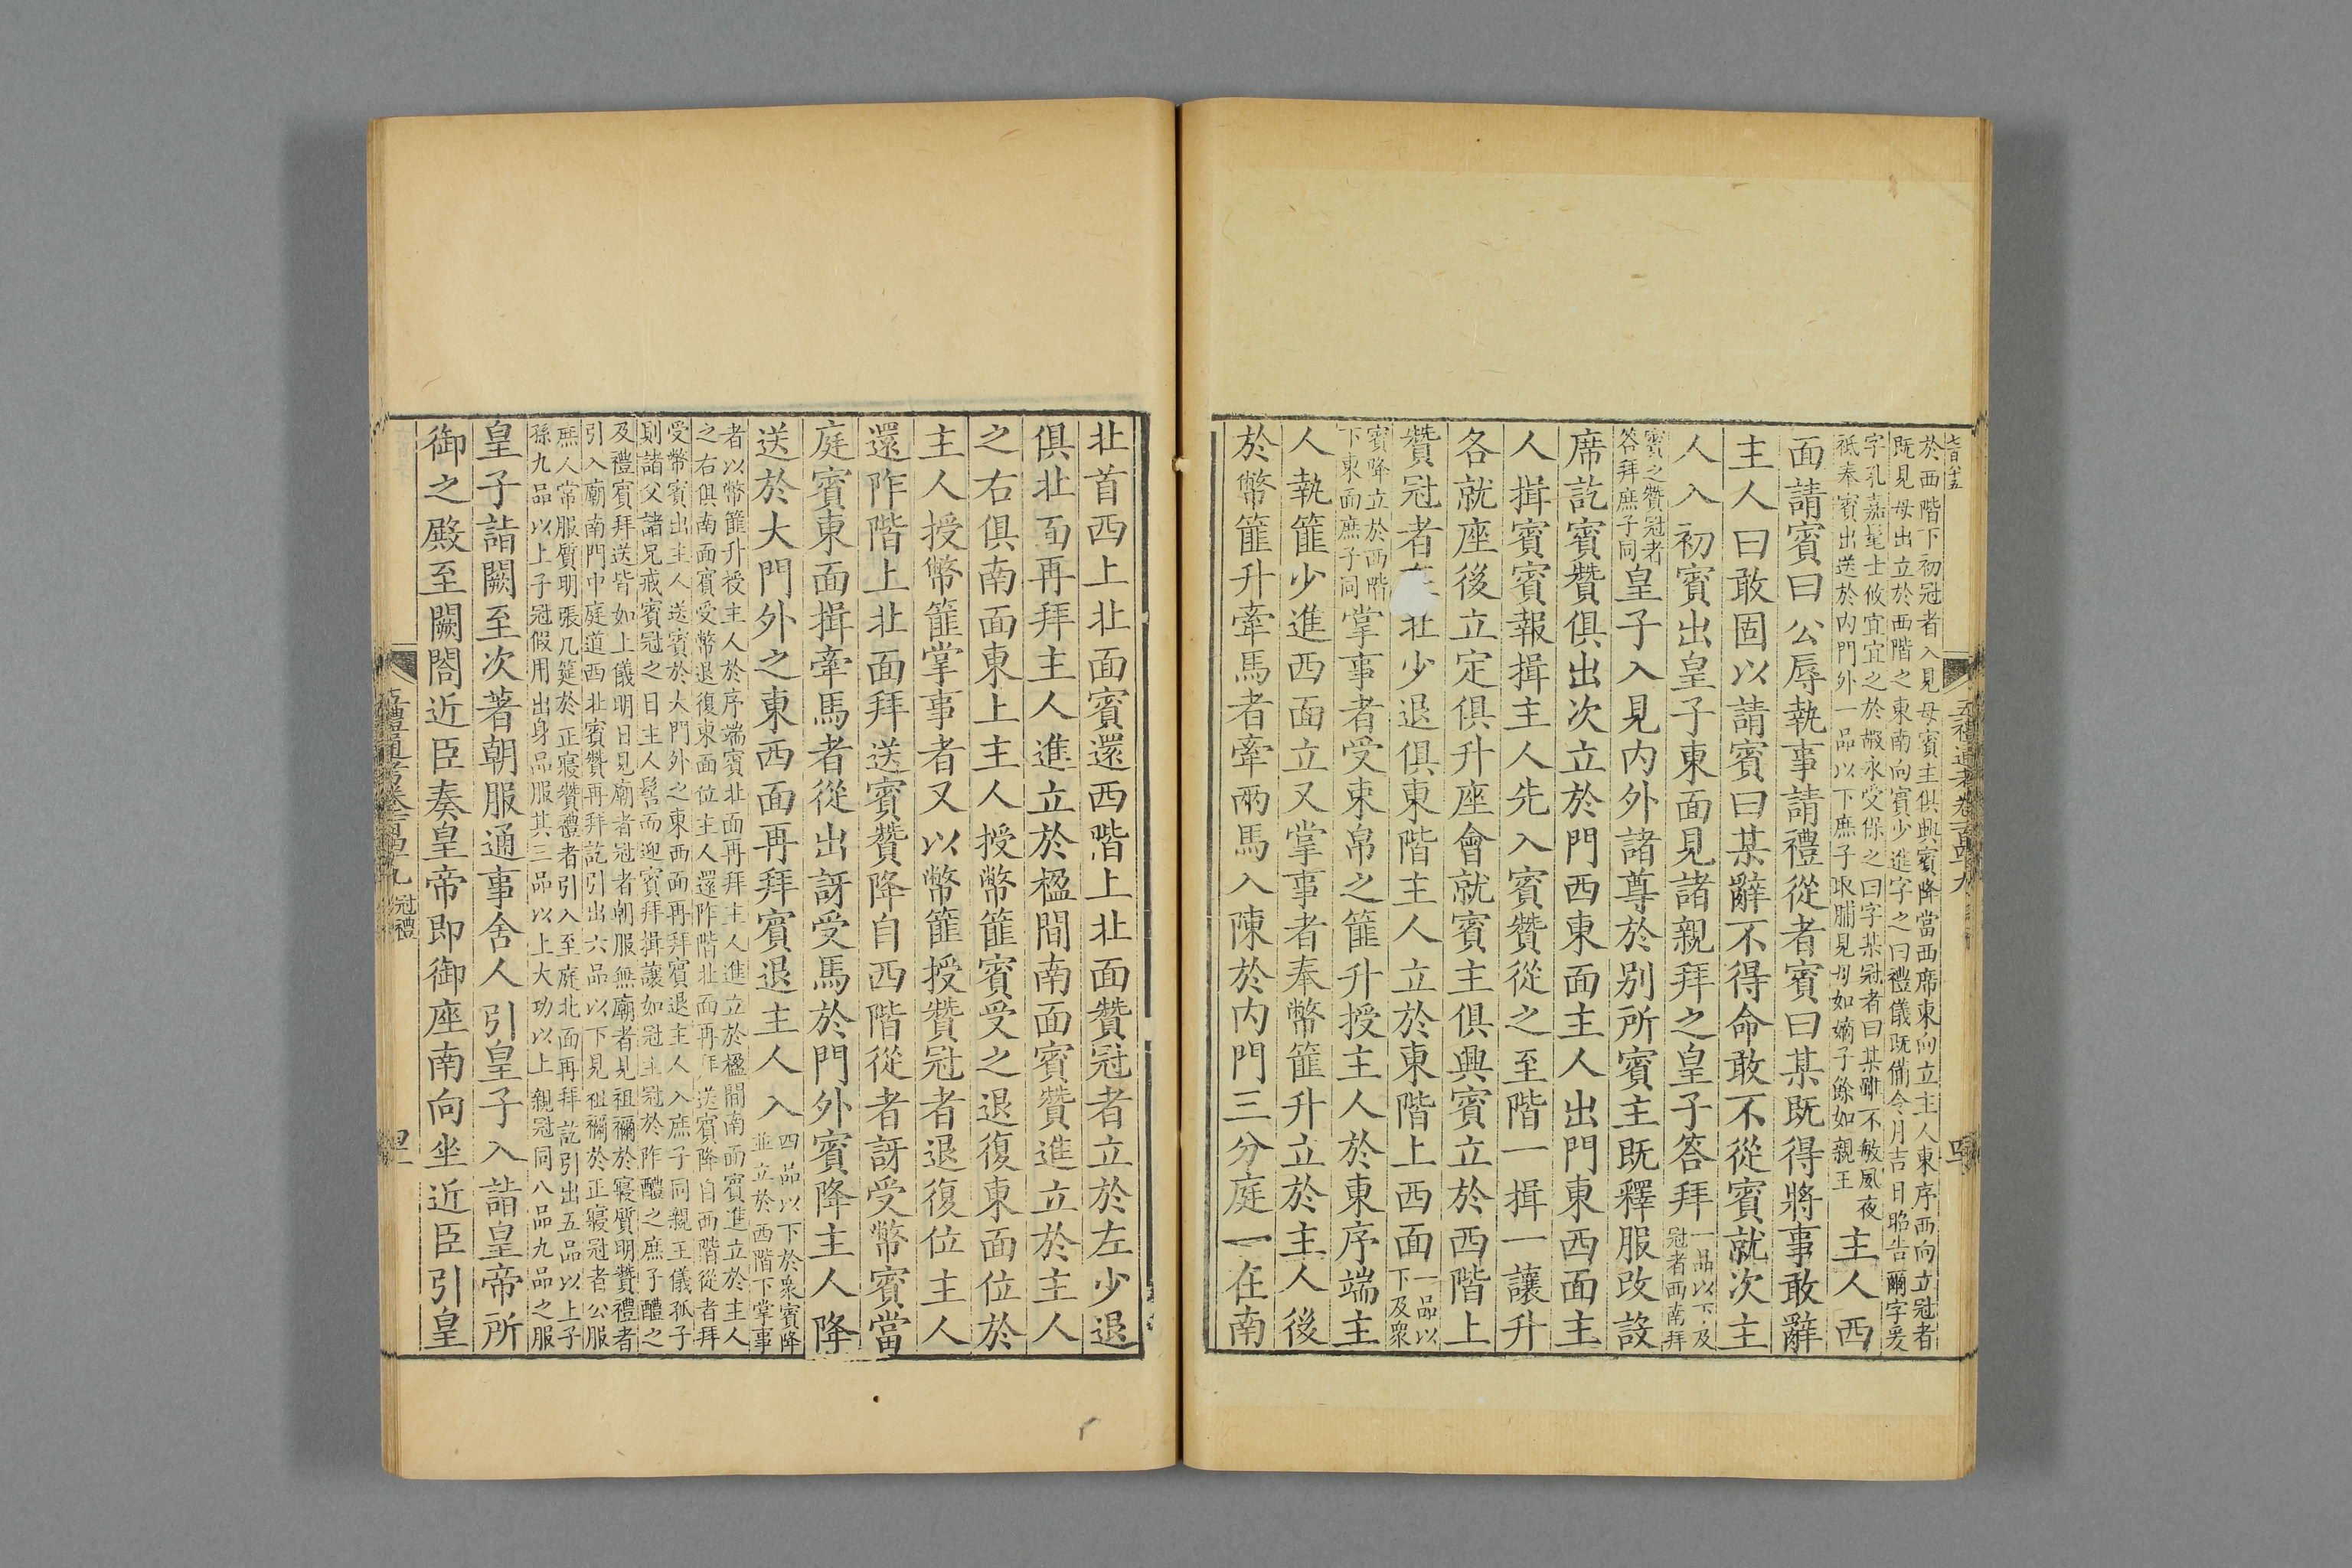 於西階下初冠者入見母賓主俱興賓降當西席東向立主人東序西向立冠者
既見母出立於西階之東南向賓少進字之曰禮儀既備令月吉日昭告爾字爰
字孔嘉髦士攸宜宜之於嘏永受保之曰字某冠者曰某雖不敏夙夜
祗奉賓出送於內門外一品以下庶子取脯見母如嫡子餘如親王
主人西
面請賓曰公辱執事請禮從者賓曰某既得將事敢辭
主人曰敢固以請賓曰某辭不得命敢不從賓就次主
人入初賓出皇子東面見諸親拜之皇子答拜
一品以下及
冠者西南拜
賓之贊冠者
答拜庶子同
皇子入見內外諸尊於別所賓主既釋服改設
席訖賓贊俱出次立於門西東面主人出門東西面主
人揖賓賓報揖主人先入賓贊從之至階一揖一讓升
各就座後立定俱升座會就賓主俱興賓立於西階上
贊冠者北少退俱東階主人立於東階上西面
一品以
下及衆
賓降立於西階
下東面庶子同
掌事者受束帛之篚升授主人於東序端主
人執篚少進西面立又掌事者奉幣篚升立於主人後
於幣篚升牽馬者牽兩馬入陳於內門三分庭一在南
北首西上北面賓還西階上北面贊冠者立於左少退
俱北面再拜主人進立於楹間南面賓贊進立於主人
之右俱南面東上主人授幣篚賓受之退復東面位於
主人授幣篚掌事者又以幣篚授贊冠者退復位主人
還阼階上北面拜送賓贊降自西階從者訝受幣賓當
庭賓東面揖牽馬者從出訝受馬於門外賓降主人降
送於大門外之東西面再拜賓退主人入
四品以下於衆賓降
並立於西階下掌事
者以幣篚升授主人於序端賓北面再拜主人進立於楹間南面賓進立於主人
之右俱南面賓受幣退復東面位主人還阼階北面再拜送賓降自西階從者拜
受幣賓出主人送賓於大門外之東西面再拜賓退主人入庶子同親王儀孤子
則諸父諸兄戒賓冠之日主人髻而迎賓拜揖讓如冠主冠於阼醴之庶子醴之
及禮賓拜送皆如上儀明日見廟者冠者朝服無廟者見祖禰於寢質明贊禮者
引入廟南門中庭道西北賓贊再拜訖引出六品以下見祖禰於正寢冠者公服
庶人常服質明張几筵於正寢贊禮者引入至庭北面再拜訖引出五品以上子
孫九品以上子冠假用出身品服其三品以上大功以上親冠同八品九品之服
皇子詣闕至次著朝服通事舍人引皇子入詣皇帝所
御之殿至闕閤近臣奏皇帝即御座南向坐近臣引皇
冠禮